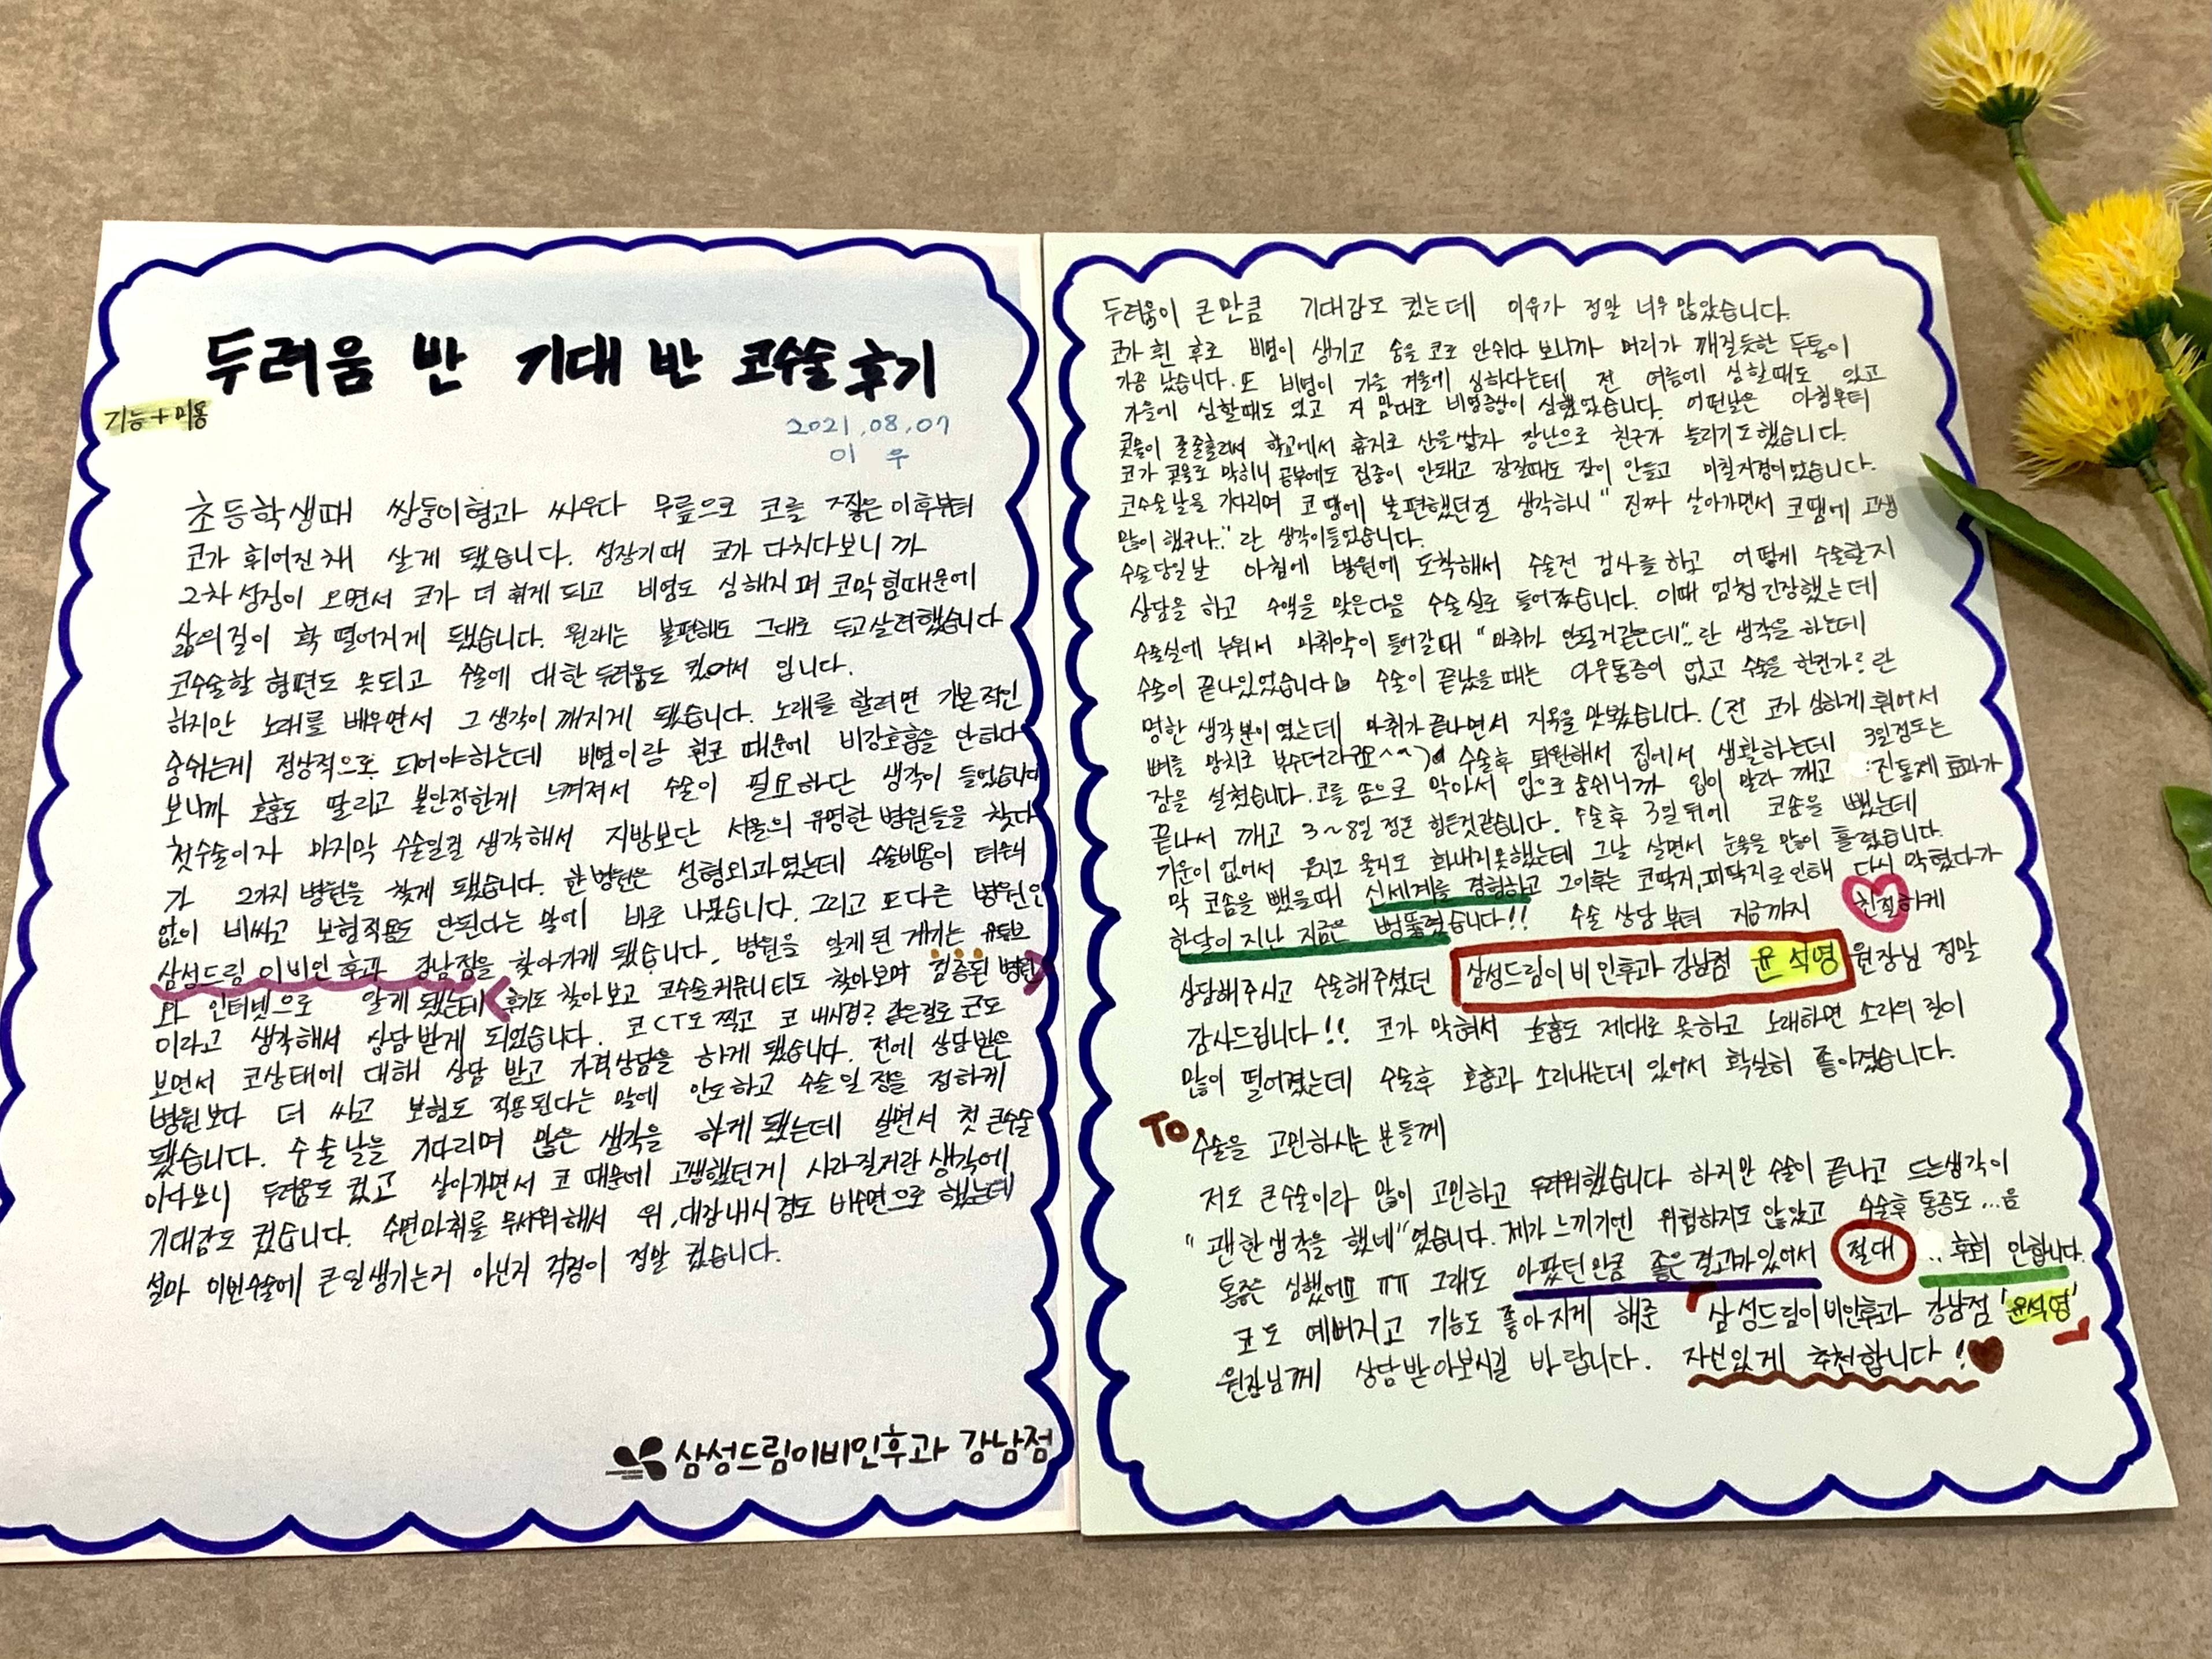 두려움 반 기대 반 코수술 후기
기능+미용
2021.08.07
이 우
초등학생때 쌍둥이형과 싸우다 무릎으로 코를 찧은이후부터
코가 휘어진채 살게 됐습니다. 성장기때 코가 다치다보니까
2차성징이 오면서 코가 더 휘게 되고 비염도 심해지며 코막힘때문에
삶의질이 확 떨어지게 됐습니다. 원래는 불편해도 그대로 두고살려했습니다
코수술할 형편도 못되고 수술에 대한두려움도 컸어서 입니다.
하지만 노래를 배우면서 그생각이 깨지게 됐습니다. 노래를 할려면 기본적인
숨쉬는게 정상적으로 되어야하는데 비염이랑 휜코 때문에 비강호흡을 안하다
보니까 호흡도 딸리고 불안정한게 느껴져서 수술이 필요하단 생각이 들었습니다
첫수술이자 마지막 수술일걸 생각해서 지방보단 서울의 유명한병원들을 찾다
가 2가지 병원을 찾게 됐습니다. 한병원은 성형외과였는데 수술비용이 터무니
없이 비싸고 보험적용도 안된다는 말에 바로 나왔습니다. 그리고 또다른 병원인
삼성드림이비인후과 강남점을 찾아가게 됐습니다. 병원을 알게된 계기는 유튜브
와 인터넷으로 알게됐는데 후기도 찾아보고 코수술커뮤니티도 찾아보며 검증된 병원
이라고 생각해서 상담받게 되었습니다. 코CT도 찍고 코 내시경? 같은걸로 코도
보면서 코상태에 대해 상담 받고 가격상담을 하게 됐습니다. 전에 상담받은
병원보다 더 싸고 보험도 적용된다는 말에 안도하고 수술일정을 정하게
됐습니다. 수술날을 기다리며 많은 생각을 하게됐는데 살면서 첫 큰수술
이다보니 두려움도 컸고 살아가면서 코 때문에 고생했던게 사라질거란 생각에
기대감도 컸습니다. 수면마취를 무서워해서 위,대장내시경도 비수면으로 했는데
설마 이번수술에 큰일생기는거 아닌지 걱정이 정말 컸습니다.
삼성드림이비인후과 강남점
두려움이 큰만큼 기대감도 컸는데 이유가 정말 너무 많았습니다.
코가 휜 후로 비염이 생기고 숨을 코로 안쉬다 보니까 머리가 깨질듯한 두통이
가끔 났습니다. 또 비염이 가을 겨울에 심하다는데 전 여름에 심할때도 있고
가을에 심할때도 있고 지 맘대로 비염증상이 심했었습니다. 어떤날은 아침부터
콧물이 줄줄흘러서 학교에서 휴지로 산을쌓자 장난으로 친구가 놀리기도했습니다.
코가 콧물로 막히니 공부에도 집중이 안돼고 잠잘때도 잠이 안들고 미칠지경이었습니다.
코수술날을 기다리며 코 땜에 불편했던걸 생각하니 "진짜 살아가면서 코땜에 고생
많이했구나.." 란 생각이들었습니다.
수술당일날 아침에 병원에 도착해서 수술전 검사를하고 어떻게 수술할지
상담을 하고 수액을 맞은다음 수술실로 들어갔습니다. 이때 엄청긴장했는데
수술실에 누워서 마취약이 들어갈때 "마취가 안될거같은데".. 란 생각을 하는데
수술이 끝나있었습니다 수술이 끝났을 때는 아무통증이 없고 수술을 한건가? 란
멍한 생각뿐이였는데 마취가끝나면서 지옥을 맛봤습니다. (전 코가 심하게 휘어서
뼈를 망치로 부수더라구요^^) 수술후 퇴원해서 집에서 생활하는데 3일정도는
잠을 설쳤습니다. 코를 솜으로 막아서 입으로 숨쉬니까 입이 말라 깨고 진통제 효과가
끝나서 깨고 3~8일 정돈 힘든것같습니다. 수술후 3일 뒤에 코솜을 뺐는데
기운이 없어서 웃지도 울지도 화내지못했는데 그날 살면서 눈물을 많이 흘렸습니다.
막 코솜을 뺐을때 신세계를 경험하고 그이후는 코딱지,피딱지로 인해 다시 막혔다가
한달이 지난 지금은 뻥뚫렸습니다!! 수술 상담부터 지금까지 친절하게
상담해주시고 수술해주셨던 삼성드림이비인후과 강남점 윤석영 원장님 정말
감사드립니다!! 코가 막혀서 호흡도 제대로 못하고 노래하면 소리의 질이
많이 떨어졌는데 수술후 호흡과 소리내는데 있어서 확실히 좋아졌습니다.
To 수술을 고민하시는 분들께
저도 큰수술이라 많이 고민하고 두려워했습니다 하지만 수술이 끝나고 드는생각이
"괜한생각을 했네"였습니다. 제가 느끼기엔 위험하지도 않았고 수술후 통증도 ...음
통증은 심했어요 ㅠㅠ 그래도 아팠던만큼 좋은결과가있어서 절대 .. 후회 안합니다.
코도 예뻐지고 기능도 좋아지게 해준 「삼성드림이비인후과 강남점 '윤석영'」
원장님께 상담받아보시길 바랍니다. 자신있게 추천합니다!